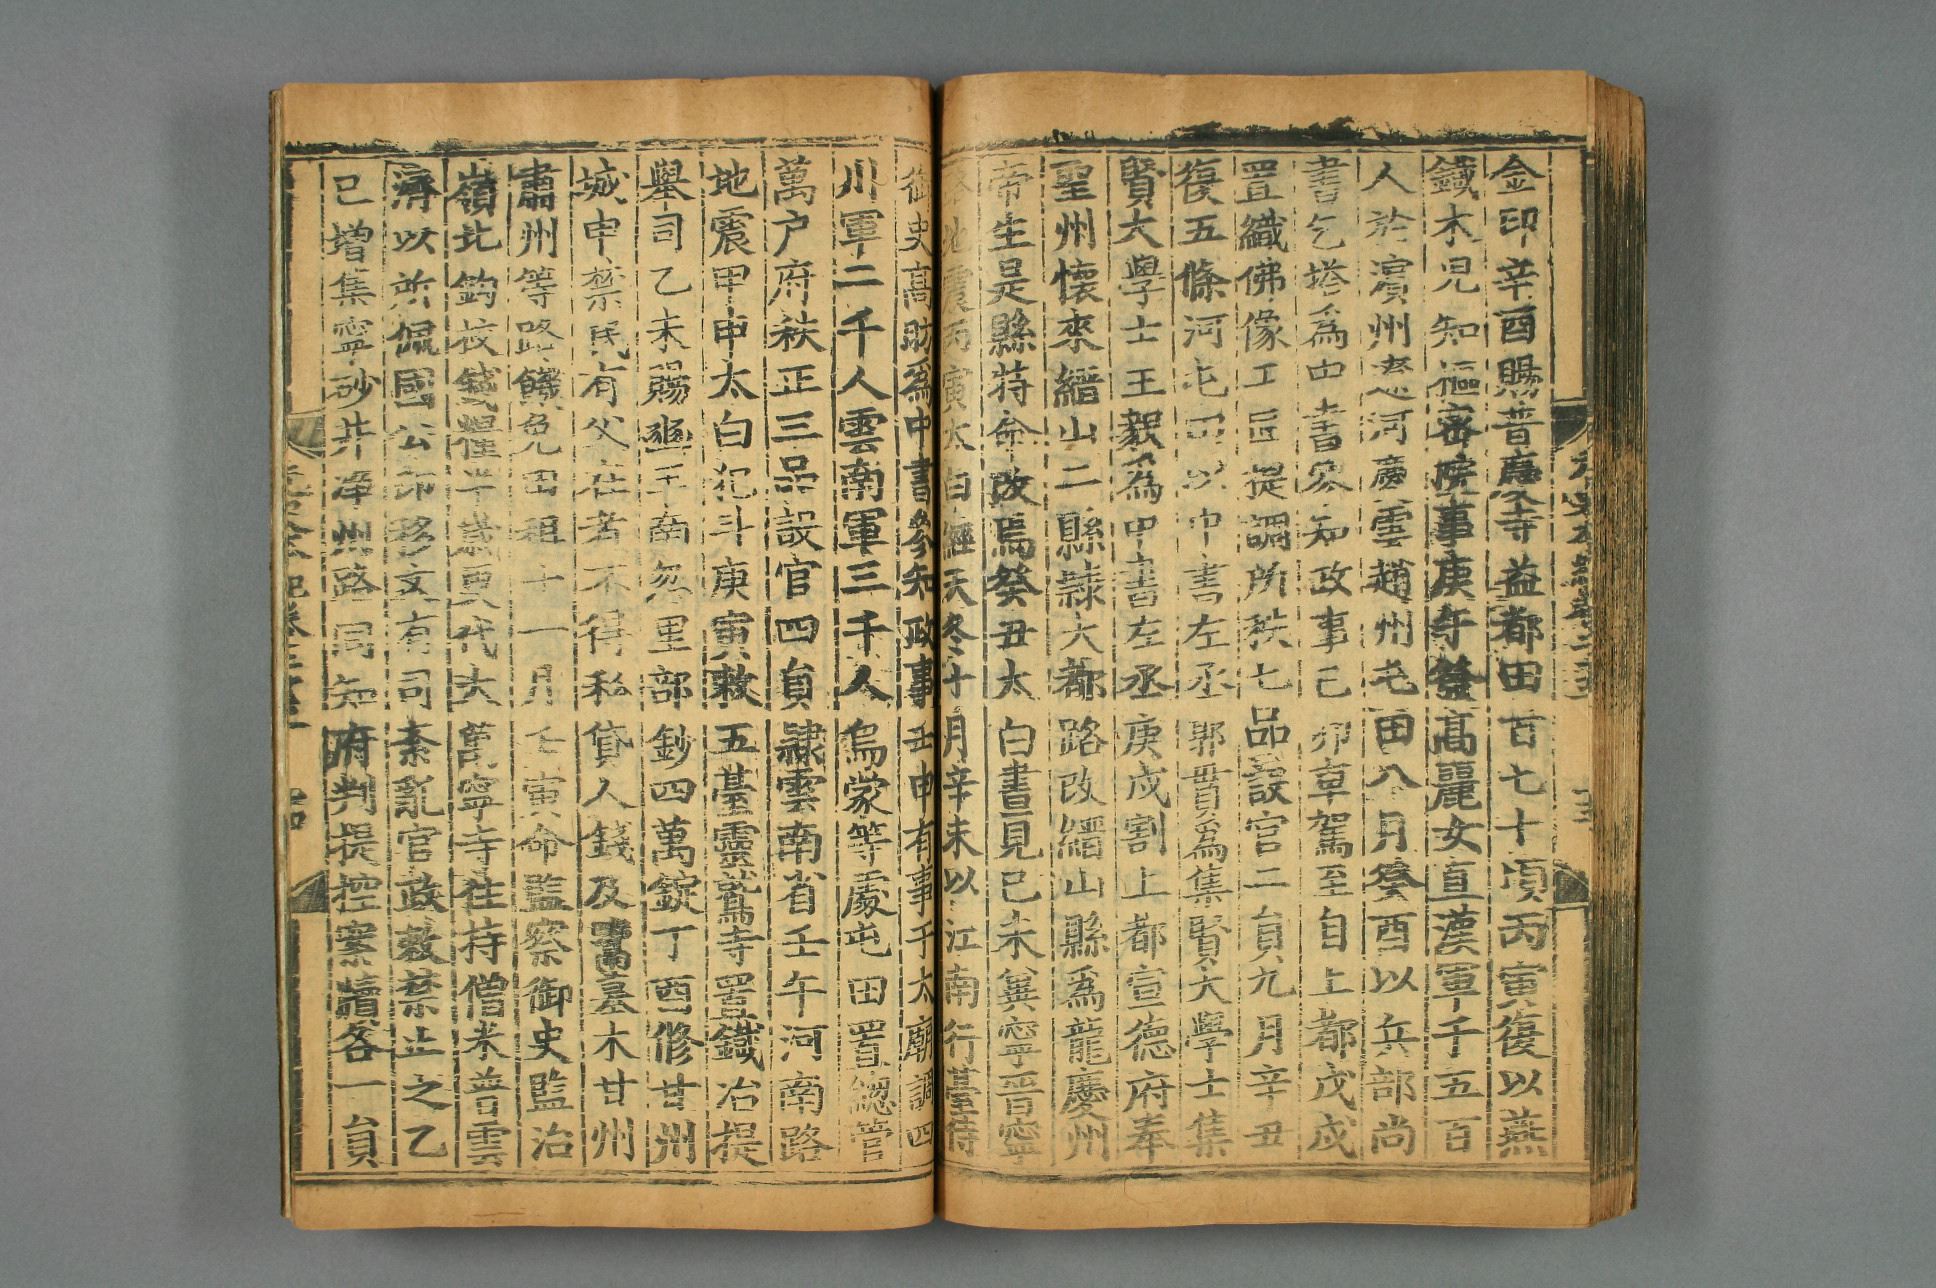 元史本紀卷二十六
金印辛酉賜普慶寺益都田百七十頃丙寅復以燕
鐵木児知樞密院事庚午發高麗女直漢軍千五百
人於濱州遼河慶雲趙州屯田八月癸酉以兵部尚
書乞塔爲中書參知政事己卯車駕至自上都戊戌
置織佛像工匠提調所秩七品設官二員九月辛丑
復五條河屯田以中書左丞郭貫爲集賢大學士集
賢大學士王毅爲中書左丞庚戌割上都宣德府奉
聖州懷來縉山二縣隸大都路改縉山縣爲龍慶州
帝生是縣特命改焉癸丑太白晝見己未冀寧晉寧
路地震丙寅太白經天冬十月辛未以江南行臺侍
御史高昉爲中書參知政事壬申有事于太廟調四
川軍二千人雲南軍三千人烏蒙等處屯田置總管
萬户府秩正三品設官四員隸雲南省壬午河南路
地震甲申太白犯斗庚寅敕五臺靈鷲寺置鐵冶提
舉司乙未賜豳王南忽里部鈔四萬錠丁酉修甘州
城申禁民有父在者不得私貸人錢及鬻墓木甘州
肅州等路饑免田租十一月壬寅命監察御史監治
嶺北鈎校錢糧半歲更代大萬寧寺住持僧米普雲
濟以所佩國公印移文有司紊亂官政敕禁止之乙
巳增集寧砂井淨州路同知府判提控案牘各一員